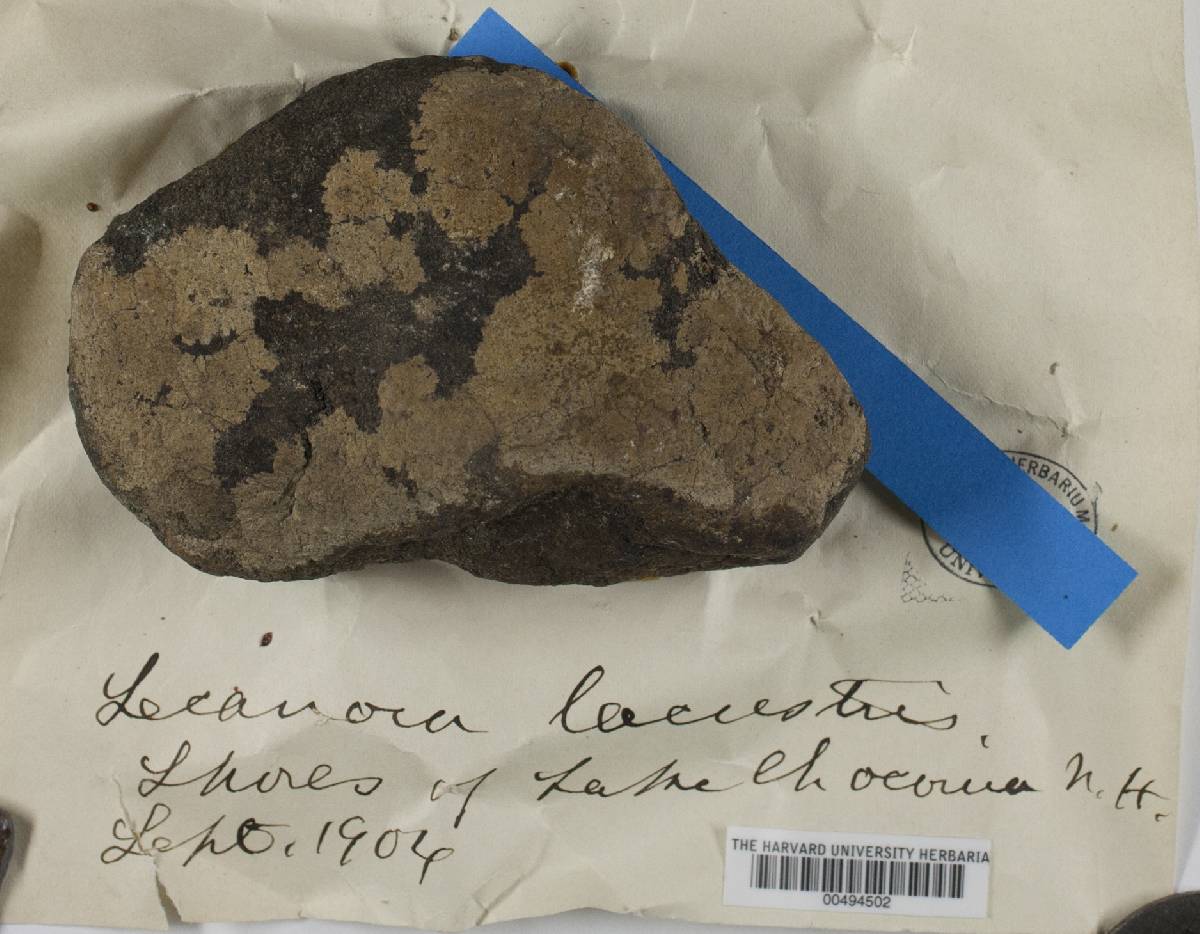 HERBARIUM
UNIV
Lecanora lacustris.
Shores of Lake Chocorua N.H.
Sept. 1904
THE HARVARD UNIVERSITY HERBARIA
00494502